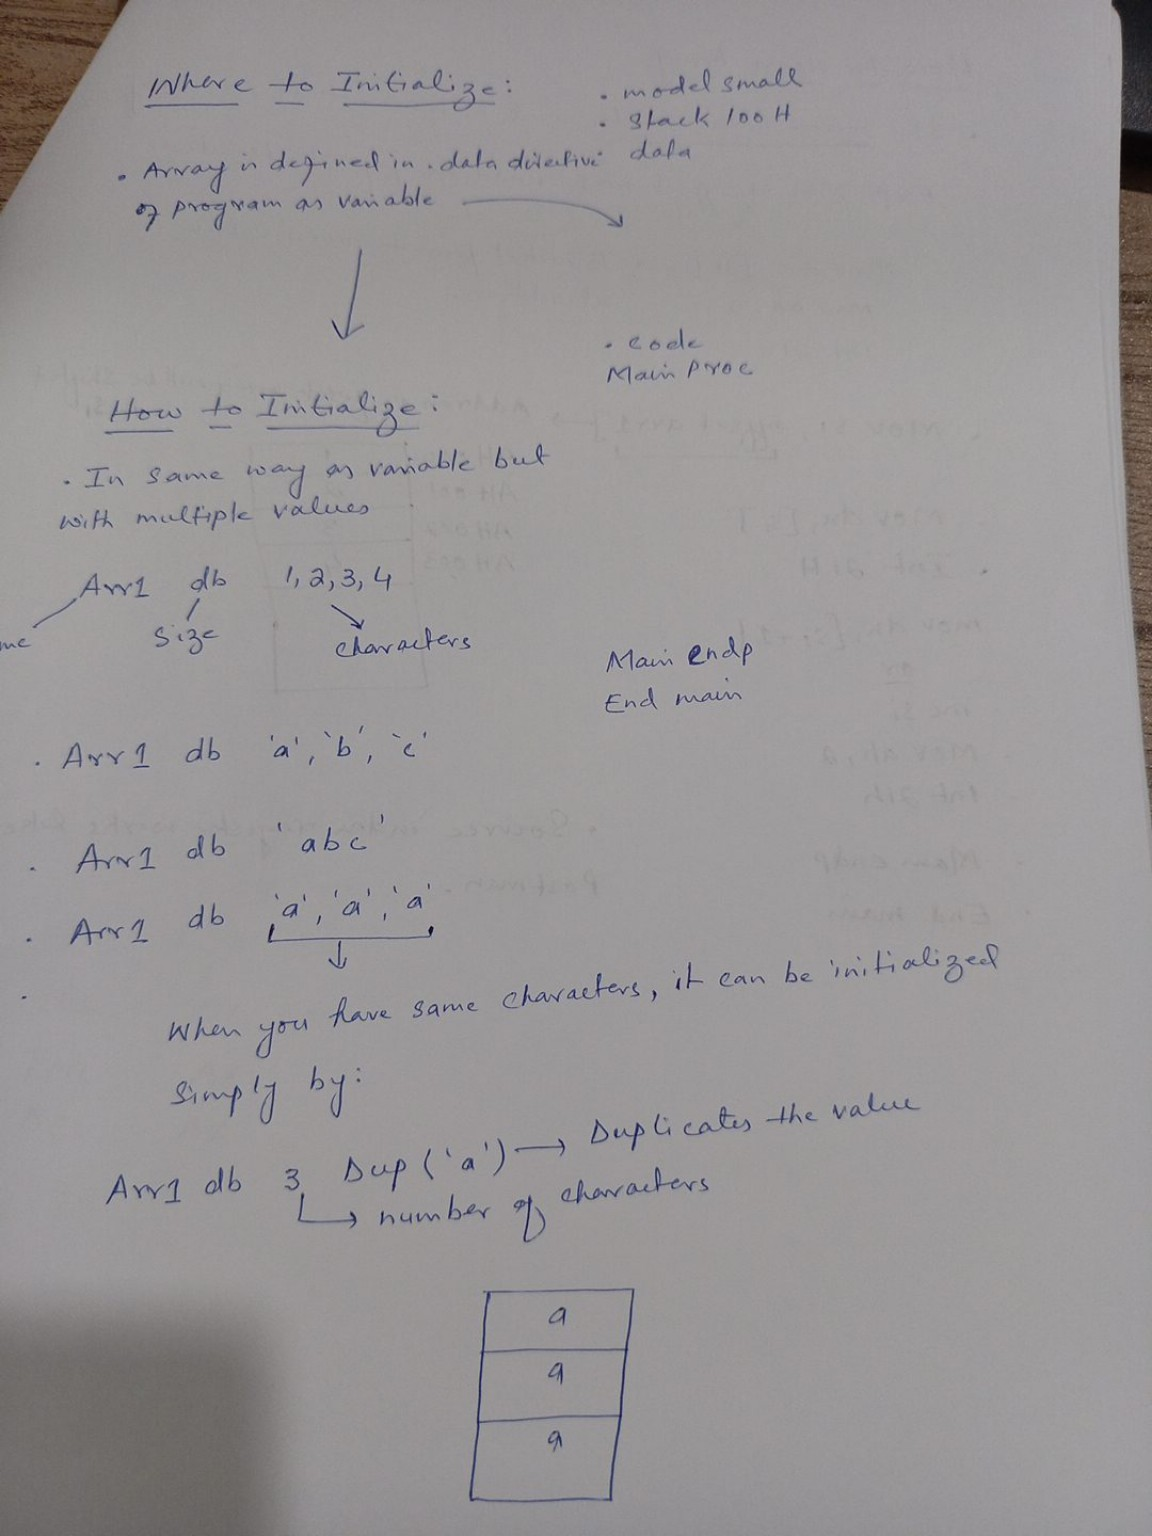 Where to Initialize:
. model small
. Stack 100 H
data
. Array is defined in .data directive
of program as variable
. code
Main Proc
How to Initialize:
. In same way as variable but
with multiple values
Arr1 db 1, 2, 3, 4
me
Size
characters
Main endp
End main
. Arr1 db 'a', 'b', 'c'
. Arr1 db 'abc'
. Arr1 db 'a', 'a', 'a'
When you have same characters, it can be initialized
Simply by:
Arr1 db 3 Dup ('a') → Duplicates the value
number of characters
a
a
a